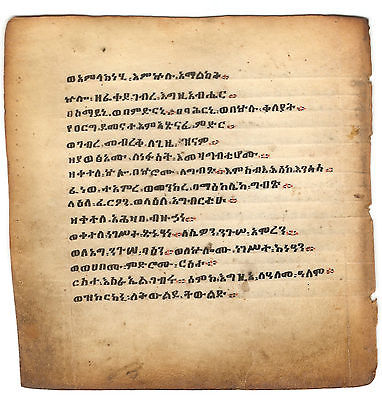 ወአምላክነሂ፡ እምኵሉ፡ አማልክት።
ኵሎ፡ ዘፈቀደ፡ ገብረ፡ እግዚአብሔር
በሰማይኒ፡ ወበምድርኒ፡ በባሕርኒ፡ ወበኵሉ፡ ቀላያት
ያዐርግ፡ ደመናተ፡ እምአጽናፈ፡ ምድር
ወገብረ፡ መብረቀ፡ ለጊዜ፡ ዝናም
ዘያወፅኦሙ፡ ለነፋሳት፡ እመዛግብቲሆሙ።
ዘቀተለ፡ በኵሮሙ፡ ለግብጽ። እምሰብእ፡ እስከ፡ እንስሳ
ፈነወ፡ ተአምረ፡ ወመንክረ፡ በማእከሌኪ፡ ግብጽ
ላዕለ፡ ፈርዖን፡ ወላዕለ፡ አግብርቲሁ
ዘቀተለ፡ አሕዛበ፡ ብዙኃነ
ወቀተለ፡ ነገሥተ፡ ጽኑዓነ። ለሴዎን፡ ንጉሠ፡ አሞሬዎን
ወለአግ፡ ንጉሠ፡ ባሳን። ወለኵሎሙ፡ ነገሥተ፡ ከናዓን።
ወወሀበ፡ ምድሮሙ፡ ርስተ።
ርስተ፡ እስራኤል፡ ገብሩ። ስምከ፡ እግዚኦ፡ ለዓለም፡
ወዝክርከኒ፡ ለትውልደ፡ ትውልድ።